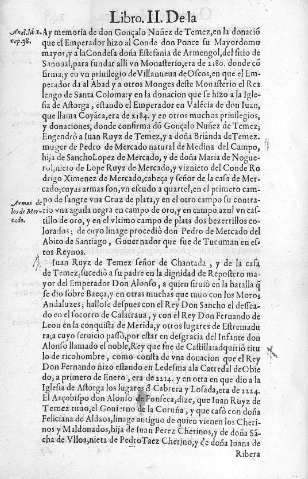 Libro. II. De la
Ay memoria de don Gonçalo Nuñez de Temez, en la donació
que el Emperador hizo al Conde don Ponce su Mayordomo
mayor, y a la Condesa doña Estefania de Armengol, del sitio de
Sandoual, para fundar alli vn Monasterio, era de
firma; y en vn priuilegio de Villanueua de Oscos, en que el Empe-
rador da al Abad y a otros Monges deste Monasterio el Rea
lengo de Santa Colomar y en la donacion que se hizo a la Igle-
sia de Astorga, estando el Emperador en Valécia de don Iuan,
que llama Coyáca, era de y en otros muchos priuilegios,
y donaciones, donde confirma dó Gonçalo Nuñez de Temez;
Engendrò a Iuan Ruyz de Temez, y a doña Brianda de Temez,
muger de Pedro de Mercado natural de Medina del Campo,
hija de Sancho Lopez de Mercado, y de doña Maria de Nogue
rol, nieto de Lope Ruyz de Mercado, y viznieto del Conde Ro
drigo Ximenez de Mercado, cabeça y señor de la casa de Mer-
cado, cuyas armas son, vn escudo a quartel, en el primero cam-
po de sangre vna Cruz de plata, y en el otro campo su contra-
rio vna aguila negra en campo de oro, y en campo azul vn casti-
llo de oro, y en el vltimo campo de plata dos bezerrillos co-
lorados; de cuyo linage procedió don Pedro de Mercado del
Abito de Santiago, Gouernador que fue de Tucuman en es
tos Reynos.
Iuan Ruyz de Temez señor de Chantada, y de la casa
de Temez, sucedió a su padre en la dignidad de Repostero ma-
yor del Emperador Don Alonso, a quien siruió en la batalla q̃
se dio sobre Baeça, y en otras muchas que tuuo con los Moros
Andaluzes; hallose despues con el Rey Don Sancho el desea-
do en el socorro de Calatraua, y con el Rey Don Fernando de
Leon en la conquista de Merida, y otros lugares de Estremadu
ra; a cuyo seruicio passó, por estar en desgracia del Infante don
Alonso llamado el noble, Rey que fue de Castilla: adquirió titu
lo de ricohombre, como consta de vna donacion que el Rey
Don Fernando hizo estando en Ledesma a la Catredal de Obie
do, a primero de Enero, era de 1214. y en otra en que dio a la
Iglesia de Astorga los lugares d Cabrera y Losada, era de 1224.
El Arçobispo don Alonso de Fonseca, dize, que Iuan Ruyz de
Temez tuuo, el Gouierno de la Coruña, y que casó con doña
Feliciana de Aldaos, linage antiguo de quien vienen los Che-
rinos y Maldonados, hija de Iuan Perez Cherino, y de doña Sá-
cha de Vlloa, nieta de Pedro Taez Cherino, y de doña Iuana de
Ribera
Armas de
los de Mer-
cado.